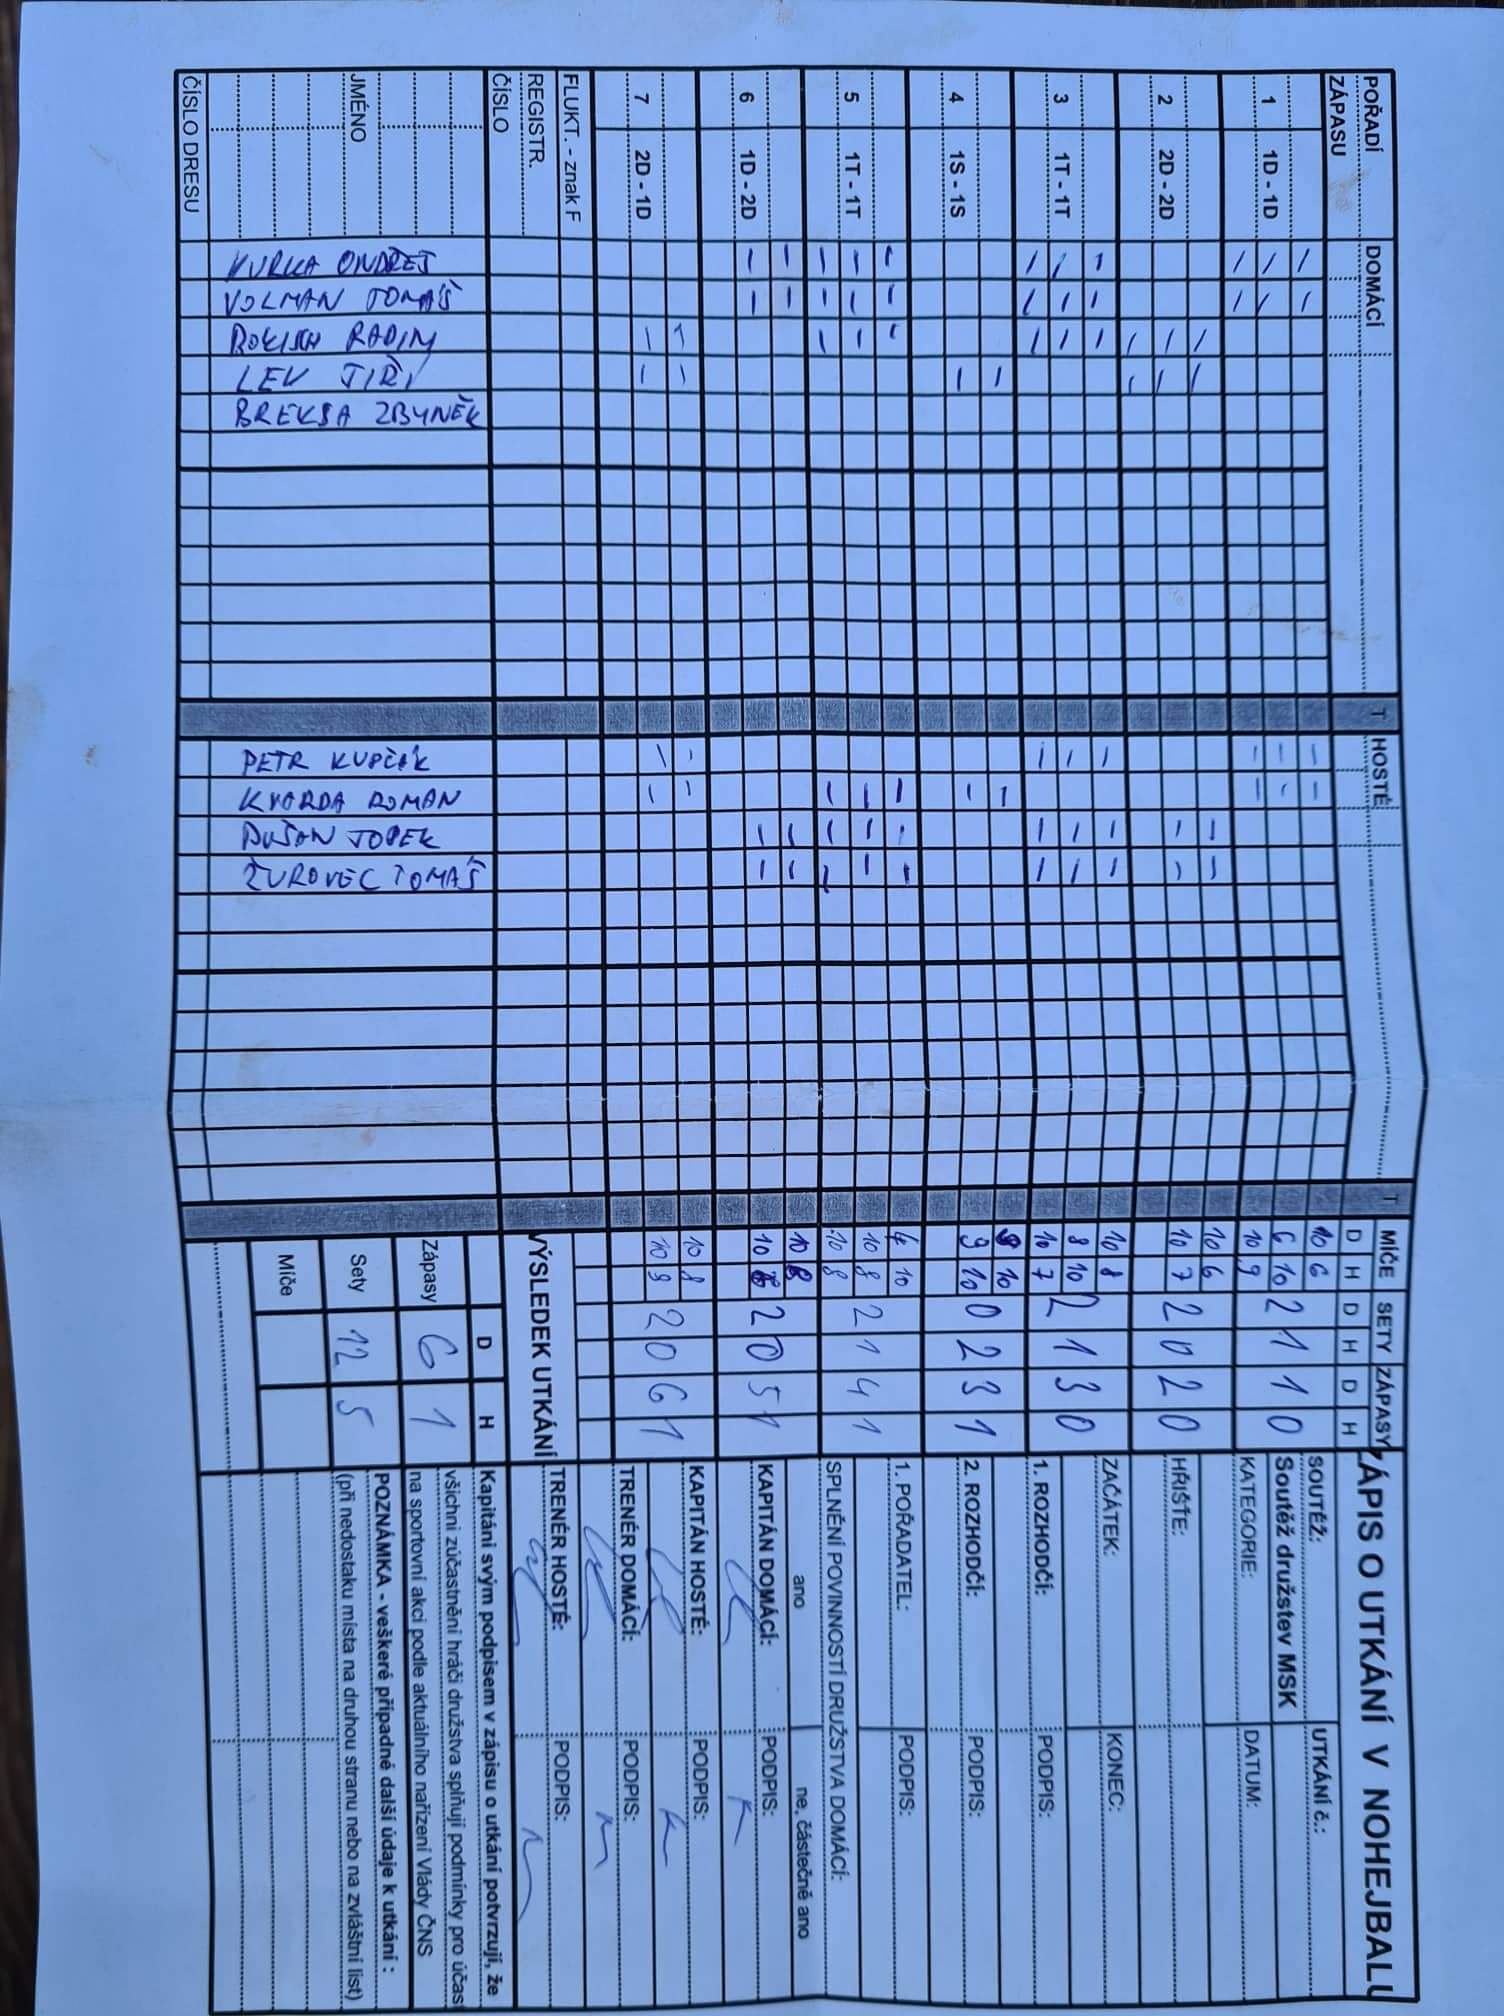 ZÁPIS O UTKÁNÍ V NOHEJBALU
POŘADÍ ZÁPASU
DOMÁCÍ
T
HOSTÉ
T
MÍČE SETY ZÁPASY
D H D H D H
1 1D - 1D
10 6
6 10 2 1 1 0
10 9
2 2D - 2D
10 6
10 7 2 0 2 0
3 1T - 1T
10 8
8 10 2 1 3 0
10 7
4 1S - 1S
10
9 10 0 2 3 1
5 1T - 1T
4 10
10 8 2 1 4 1
10 8
6 1D - 2D
10 8
10 2 0 5 1
7 2D - 1D
10 8
10 9 2 0 6 1
FLUKT. - znak F
REGISTR.
ČÍSLO
JMÉNO
ČÍSLO DRESU
KURKA ONDŘEJ
VOLMAN TOMÁŠ
RADIM
LEV JIŘÍ
BREKSA ZBYNĚK
PETR KUPČÍK
KVARDA ROMAN
DUŠAN TOPEK
ŽUROVEC TOMÁŠ
VÝSLEDEK UTKÁNÍ
D H
Zápasy 6 1
Sety 12 5
Míče
SOUTĚŽ: UTKÁNÍ č.:
Soutěž družstev MSK
KATEGORIE: DATUM:
HŘIŠTĚ:
ZAČÁTEK: KONEC:
1. ROZHODČÍ: PODPIS:
2. ROZHODČÍ: PODPIS:
1. POŘADATEL: PODPIS:
SPLNĚNÍ POVINNOSTÍ DRUŽSTVA DOMÁCÍ:
ano ne, částečně ano
KAPITÁN DOMÁCÍ: PODPIS:
KAPITÁN HOSTÉ: PODPIS:
TRENÉR DOMÁCÍ: PODPIS:
TRENÉR HOSTÉ: PODPIS:
Kapitáni svým podpisem v zápisu o utkání potvrzují, že
všichni zúčastnění hráči družstva splňují podmínky pro účast
na sportovní akci podle aktuálního nařízení Vlády ČNS
POZNÁMKA - veškeré případné další údaje k utkání :
(při nedostaku místa na druhou stranu nebo na zvláštní list)